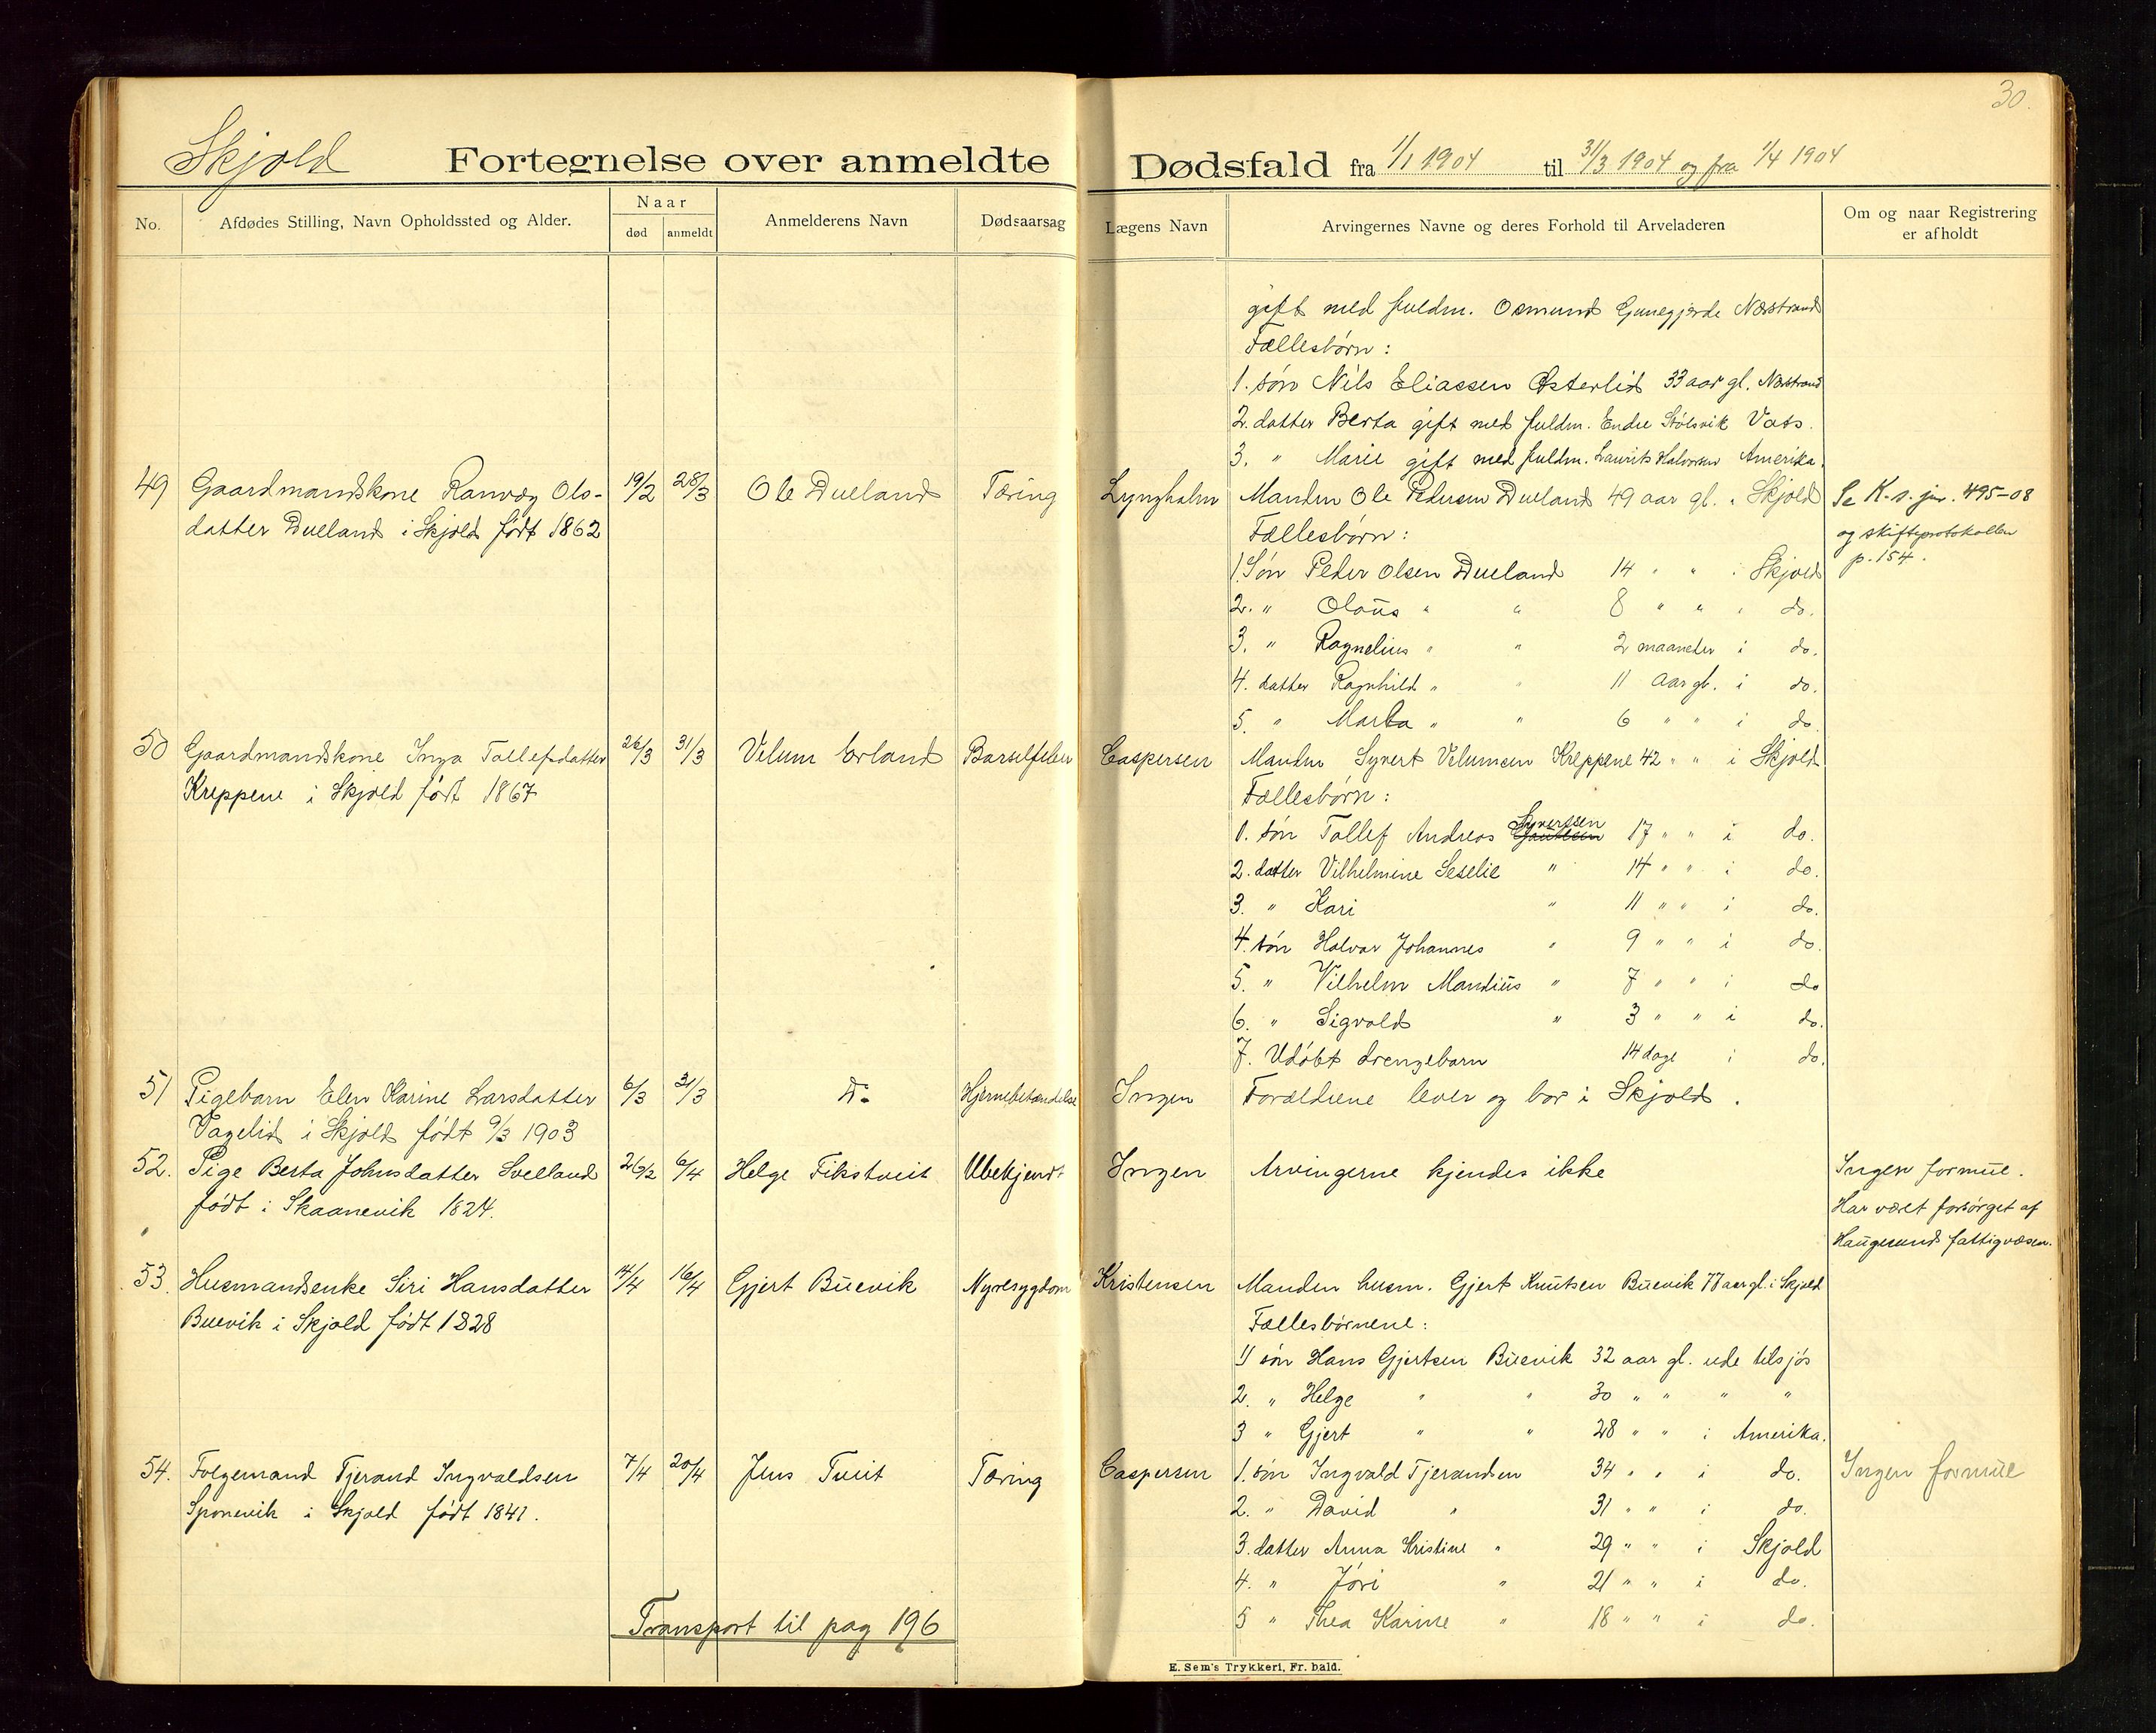 30.
Skjold Fortegnelse over anmeldte Dødsfald fra 1/1 1904 til 31/3 1904 og fra 1/4 1904
No. Afdødes Stilling, Navn Opholdssted og Alder. Naar død anmeldt Anmelderens Navn Dødsaarsag Lægens Navn Arvingernes Navne og deres Forhold til Arveladeren Om og naar Registrering er afholdt
gift med fuldm. Osmund Nærstrand
Fællesbørn :
1. søn Nils Eliassen Østerlid 33 aar gl. Nærstrand
2. datter Berta gift med fuldm. Endre Stølsvik Vats.
3. " Marie gift med fuldm. Laurits Halvorsen Amerika.
49 Gaardmandskone Ranvæg Ols- 19/2 28/3 Ole Dueland Tæring Lyngholm Manden Ole Pedersen Dueland 49 aar gl. i Skjold Se K.s. jur. 495-08
datter Dueland i Skjold født 1862 Fællesbørn : og skifteprotokollen
1. Søn Peder Olsen Dueland 14 " " i Skjold p. 154.
2. " Olaus " " 8 " " " do.
3. " Ragnelius " " 2 maaneder i do.
4. datter Ragnhild " " 11 Aar gl. i do.
5. " Marta " " 6 " " i do
50 Gaardmandskone Inga Tollefsdatter 26/3 31/3 Velum Erland Barselfeber Caspersen Manden Syvert Velumsen Kreppene 42 " " i Skjold
Kreppene i Skjold født 1867 Fællesbørn :
1. søn Tollef Andreas Syvertsen 17 " " i do.
2. datter Vilhelmine Seselie " 14 " " i do.
3. " Kari " 11 " " i do.
4. søn Halvor Johannes " 9 " " i do.
5. " Vilhelm Mandius " 7 " " i do
6. " Sigvald " 3 " " i do.
7. Udøbt drengebarn 14 dage i do.
51 Pigebarn Elen Karine Larsdatter 6/3 31/3 Do Hjernebetændelse Ingen Forældrene lever og bor i Skjold .
Vagelid i Skjold født 9/3 1903
52. Pige Berta Johnsdatter Svelland 26/2 6/4 Helge Fikstveit Ubekjendt Ingen Arvingerne kjendes ikke Ingen formue.
født i Skaanevik 1824. Har været forsørget af
Haugesund fattigvæsen.
53. Husmandsenke Siri Hansdatter 14/4 16/4 Gjert Buevik Nyresygdom Kristensen Manden husm. Gjert Knutsen Buevik 77 aar gl. i Skjold
Buevik i Skjold født 1828 Fællesbørnene :
1) søn Hans Gjertsen Buevik 32 aar gl. ude tilsjøs
2. " Helge " " 30 " " " "
3 " Gjert " " 28 " " i Amerika.
54. Folgemand Tjerand Ingvaldsen 7/4 20/4 Jens Tveit Tæring Caspersen 1. søn Ingvald Tjerandsen 34 " " i do. Ingen formue
Sponevik i Skjold født 1841. 2. " David " 31 " " i do.
3. datter Anna Kristine " 29 " " i Skjold
4. " Jøri " 21 " " i do.
5 " Thea Karine " 18 " " i do.
Transport til pag 196
E. Sem's Trykkeri, Fr. hald.